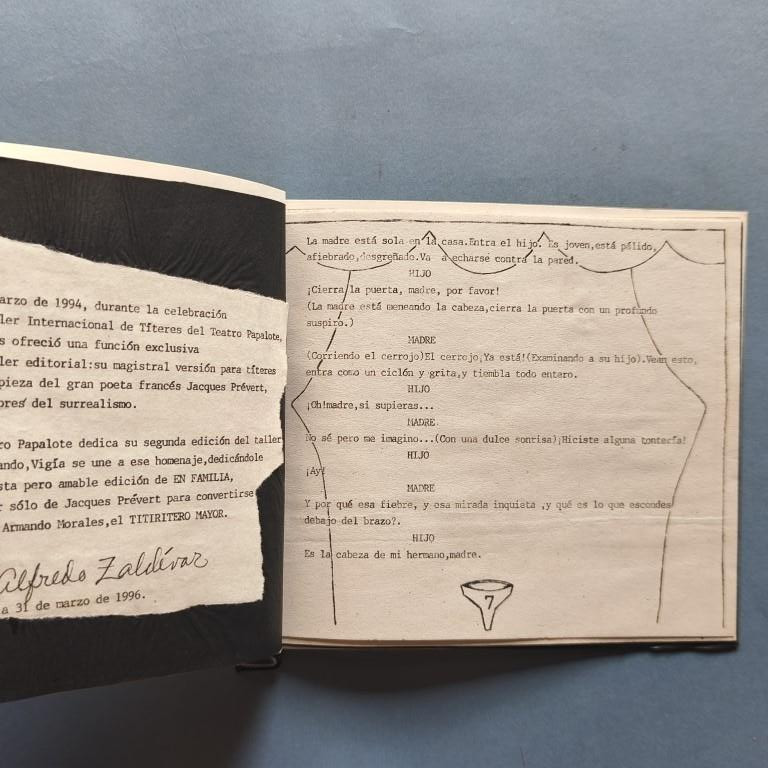 arzo de 1994, durante la celebración
ler Internacional de Títeres del Teatro Papalote,
s ofreció una función exclusiva
ler editorial:su magistral versión para títeres
pieza del gran poeta francés Jacques Prévert,
ores del surrealismo.
ro Papalote dedica su segunda edición del taller
ando,Vigía se une a ese homenaje,dedicándole
sta pero amable edición de EN FAMILIA,
r sólo de Jacques Prévert para convertirse
Armando Morales,el TITIRITERO MAYOR.
Alfredo Zaldívar
a 31 de marzo de 1996.
La madre está sola en la casa.Entra el hijo. Es joven,está pálido,
afiebrado,desgreñado.Va a echarse contra la pared.
HIJO
¡Cierra la puerta, madre, por favor!
(La madre está meneando la cabeza,cierra la puerta con un profundo
suspiro.)
MADRE
(Corriendo el cerrojo)El cerrojo,Ya está!(Examinando a su hijo).Vean esto,
entra como un ciclón y grita,y tiembla todo entero.
HIJO
¡Oh!madre,si supieras...
MADRE
No sé pero me imagino...(Con una dulce sonrisa)¡Hiciste alguna tontería!
HIJO
¡Ay!
MADRE
Y por qué esa fiebre, y esa mirada inquieta ,y qué es lo que escondes
debajo del brazo?.
HIJO
Es la cabeza de mi hermano,madre.
7